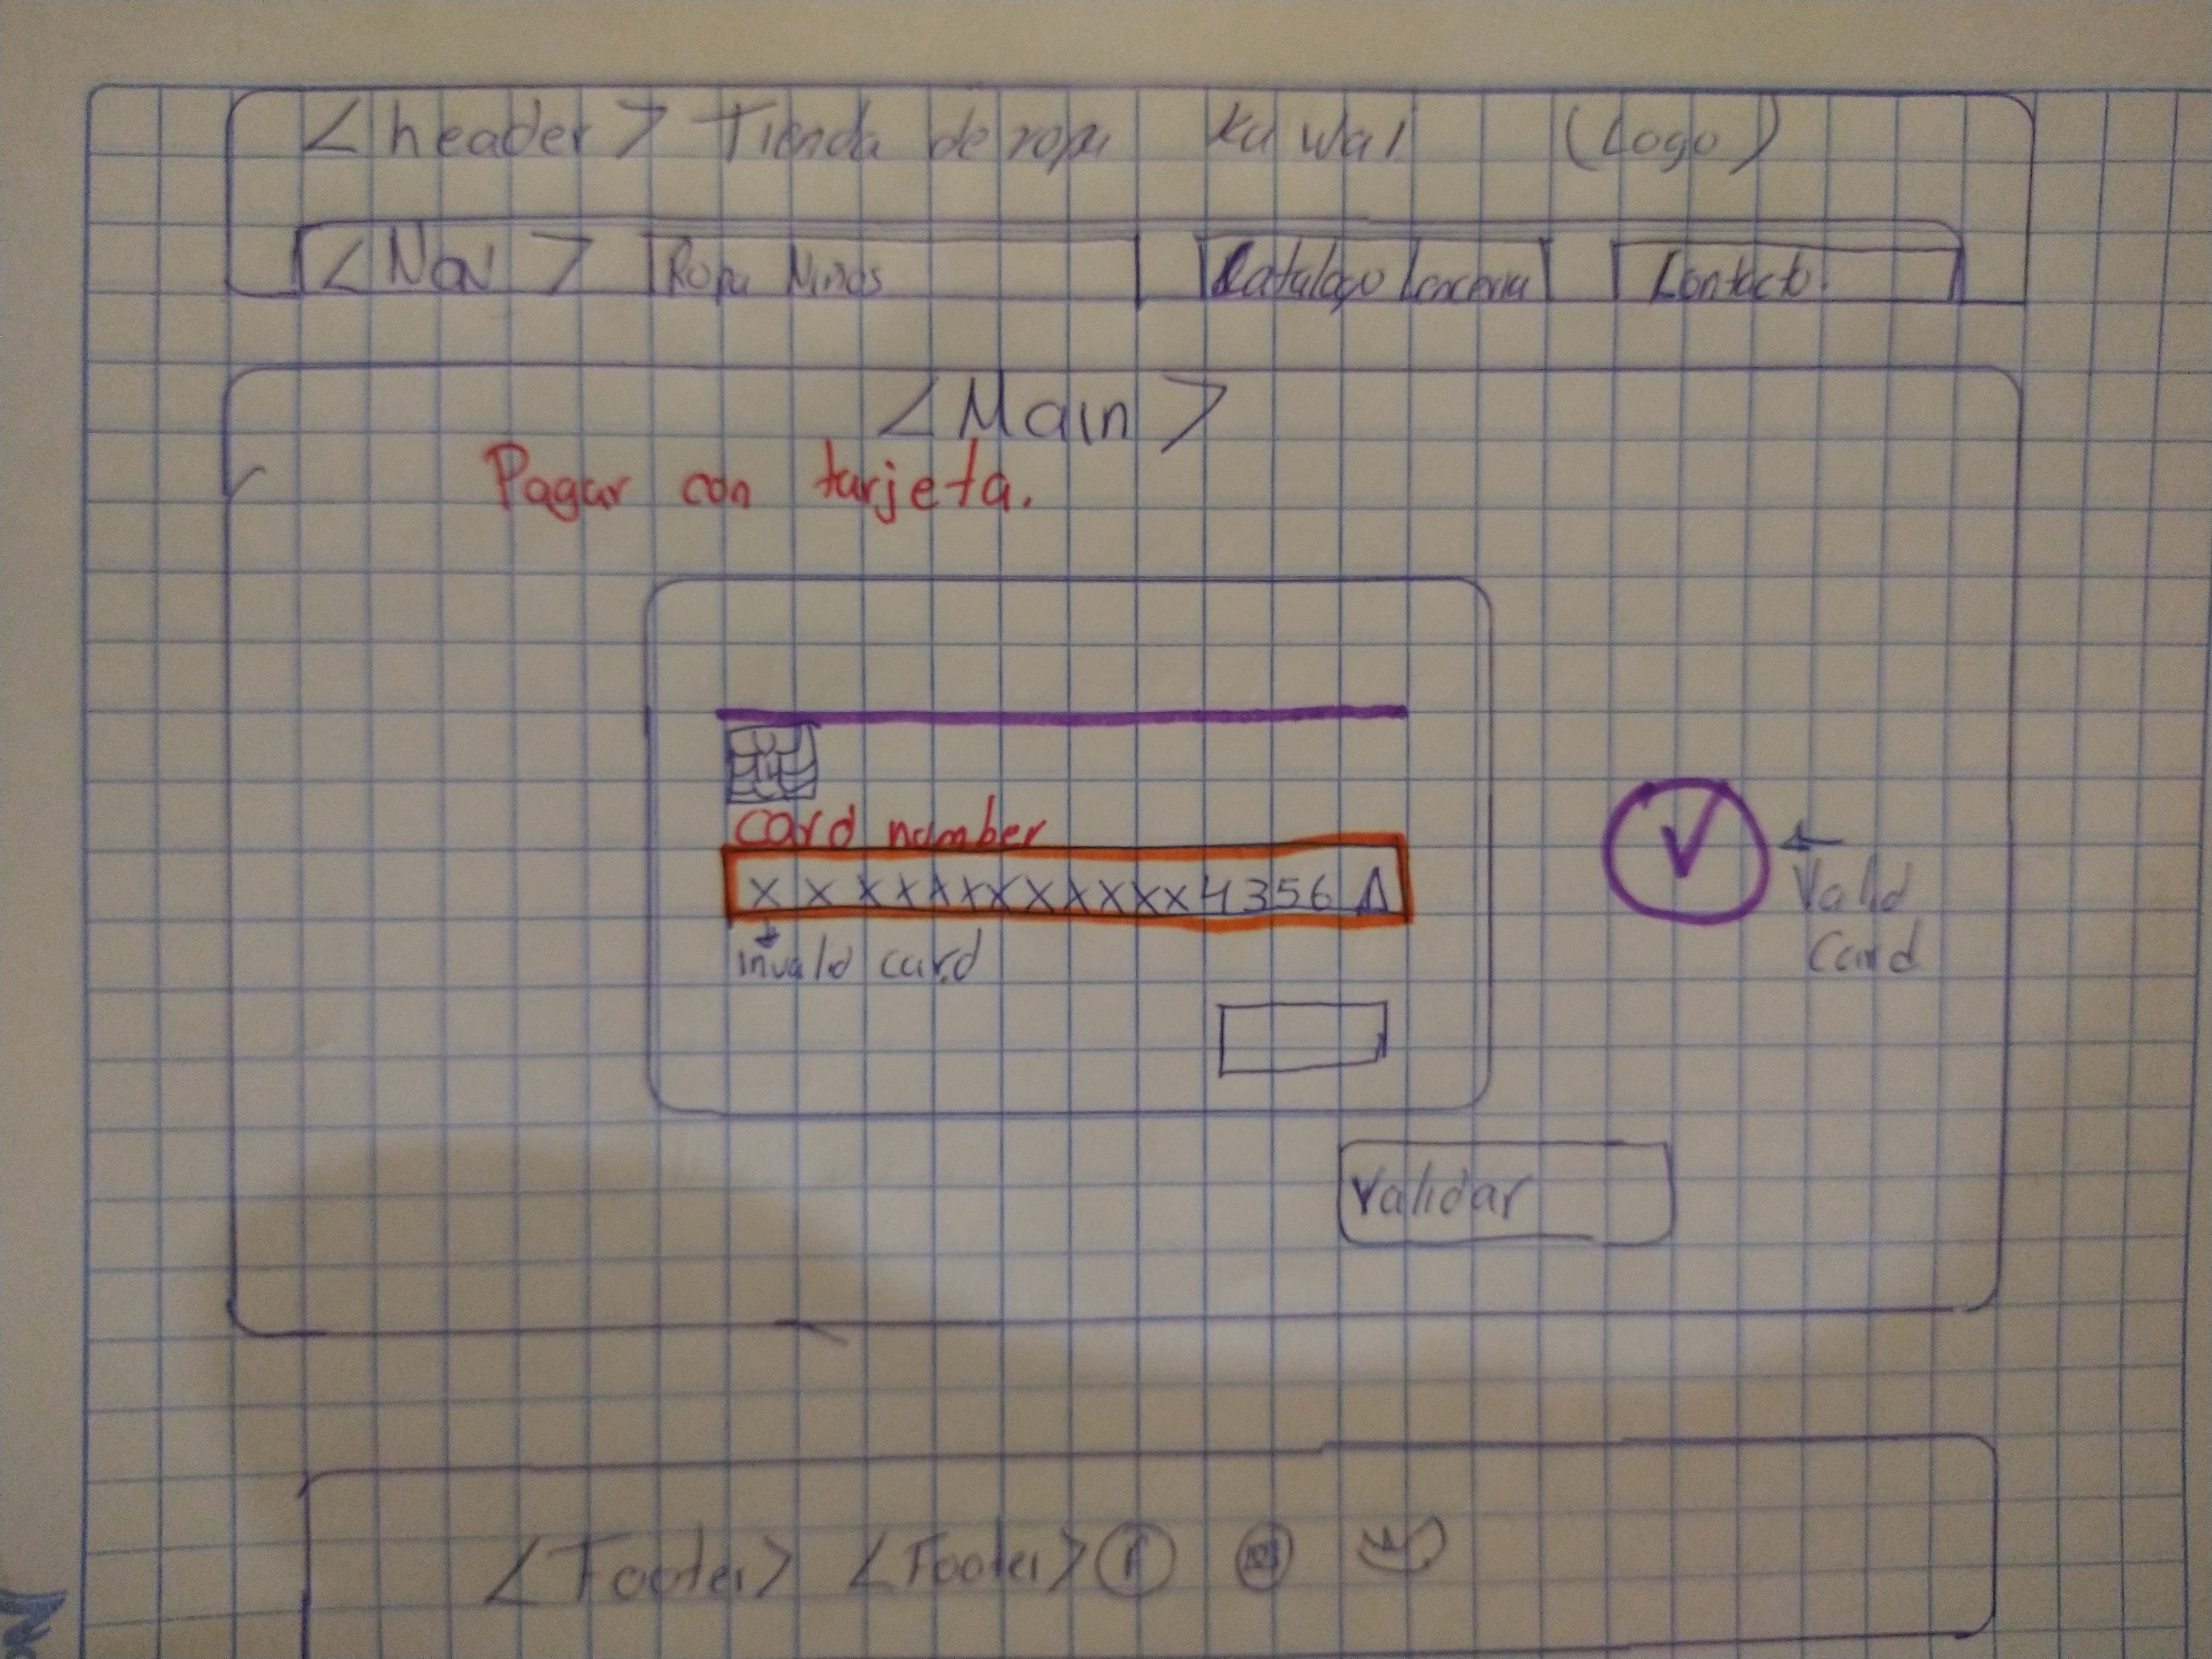 <header> Tienda de ropa Kawai (Logo)
<Nav> Ropa Niños Catalago Lenceria Contacto
<Main>
Pagar con tarjeta.
card number
x x x x x x x x x x x x 4356
invalid card
Valid
Card
Validar
<Footer> <Footer> f